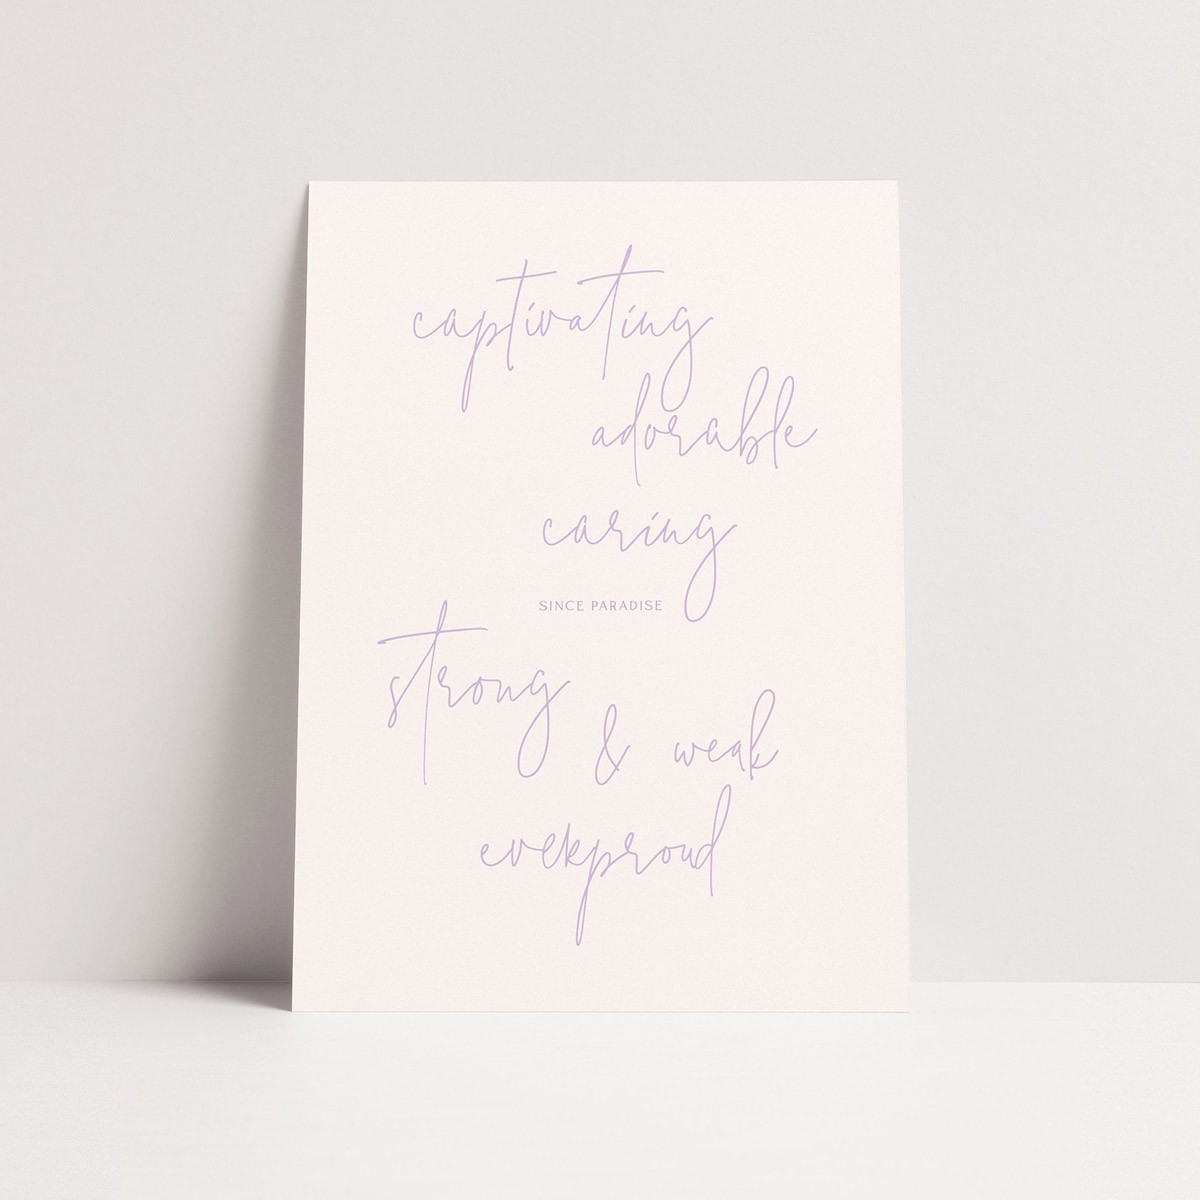 captivating
adorable
caring
SINCE PARADISE
strong
& weak